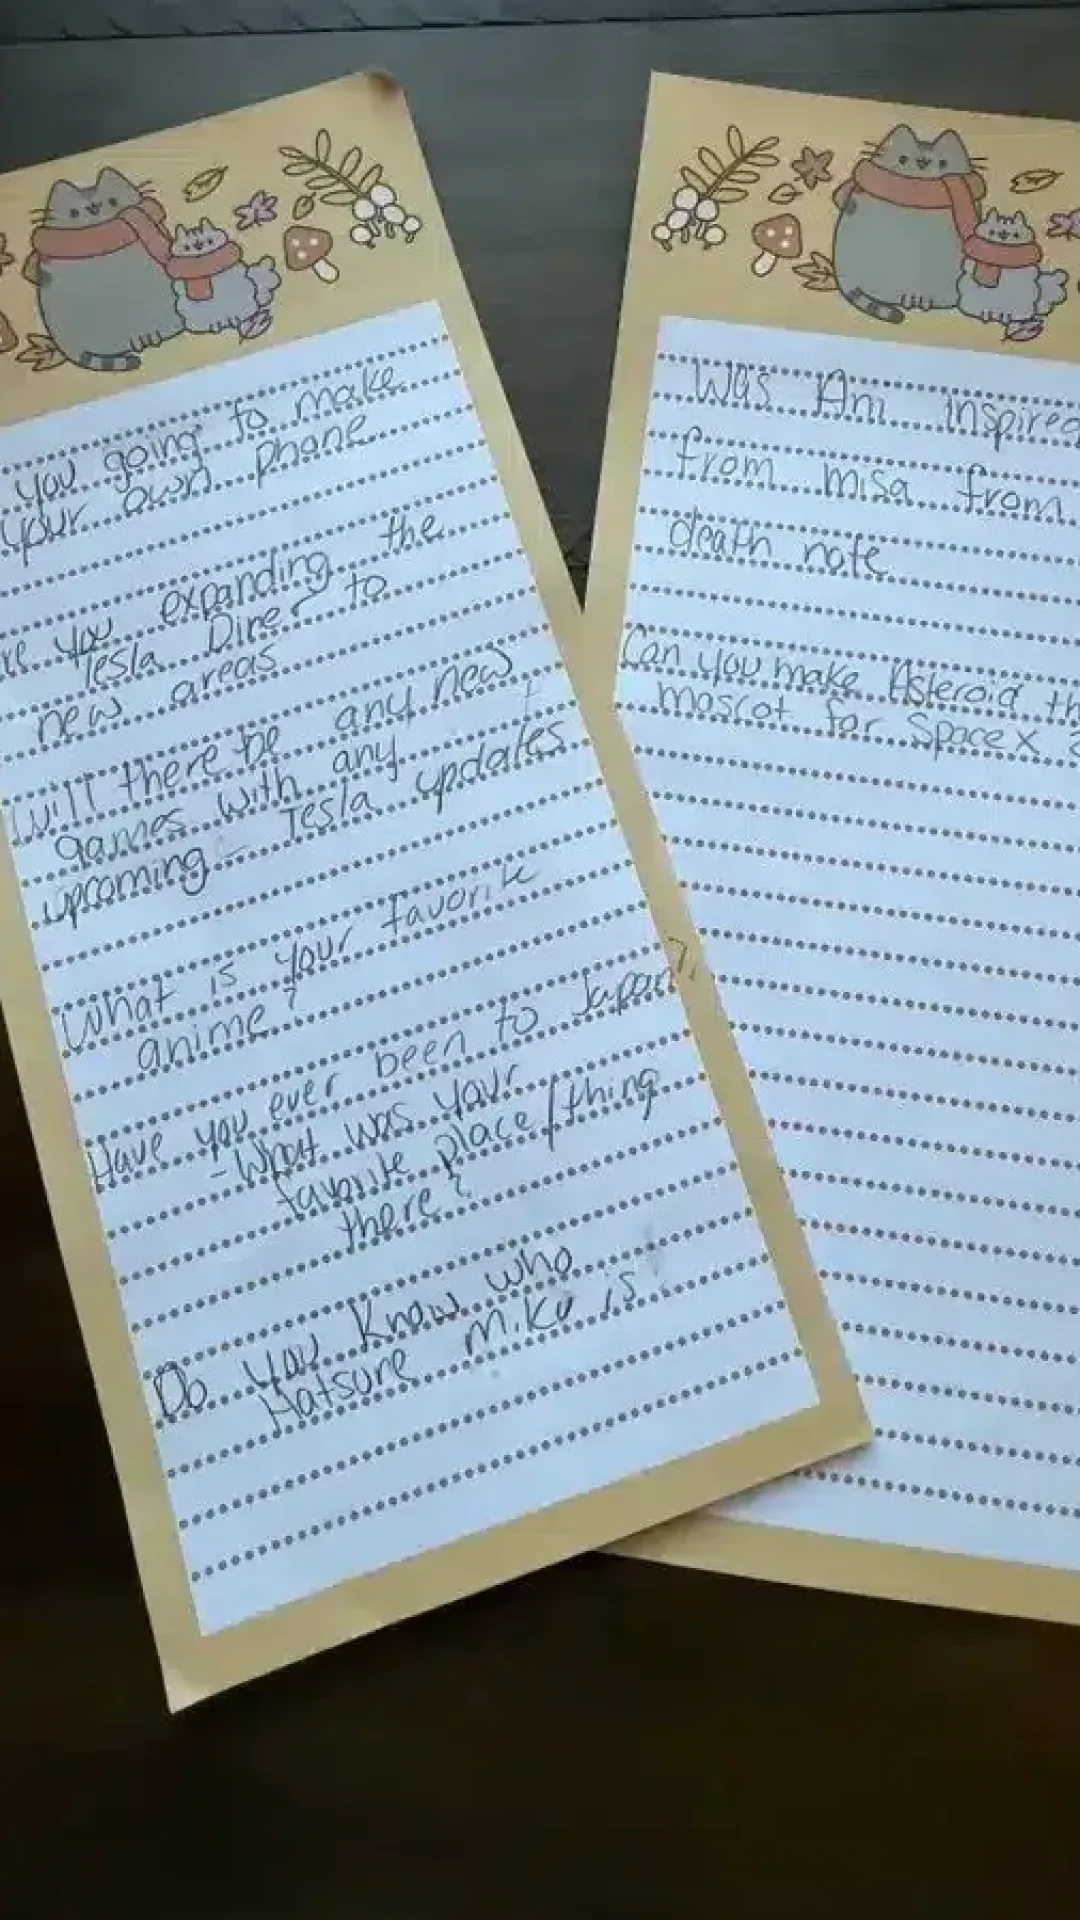 you going to make
your own phone
you expanding the
Tesla Diner to
new areas
will there be any new
games with any
upcoming Tesla updates
What is your favorite
anime?
Have you ever been to Japan?
- What was your
favorite place/thing
there?
Do you Know who
Hatsure Miku is
Was Ani inspired
from misa from
death note
Can you make Asteroid
mascot for SpaceX